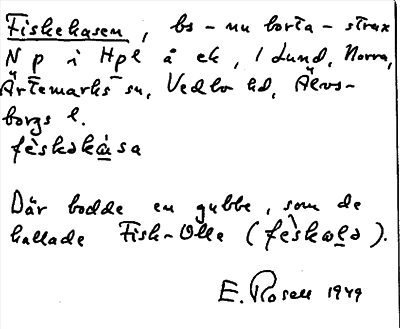 Fiskekasen, bs - nu borta - strax
N p i Hpl å ek, 1 Lund, Norra,
Ärtemarks sn, Vedbo hd, Älvs-
borgs l.
fèskəkàsa
Där bodde en gubbe, som de
kallade Fisk-Olle (fèskolə).
E. Rosell 1949